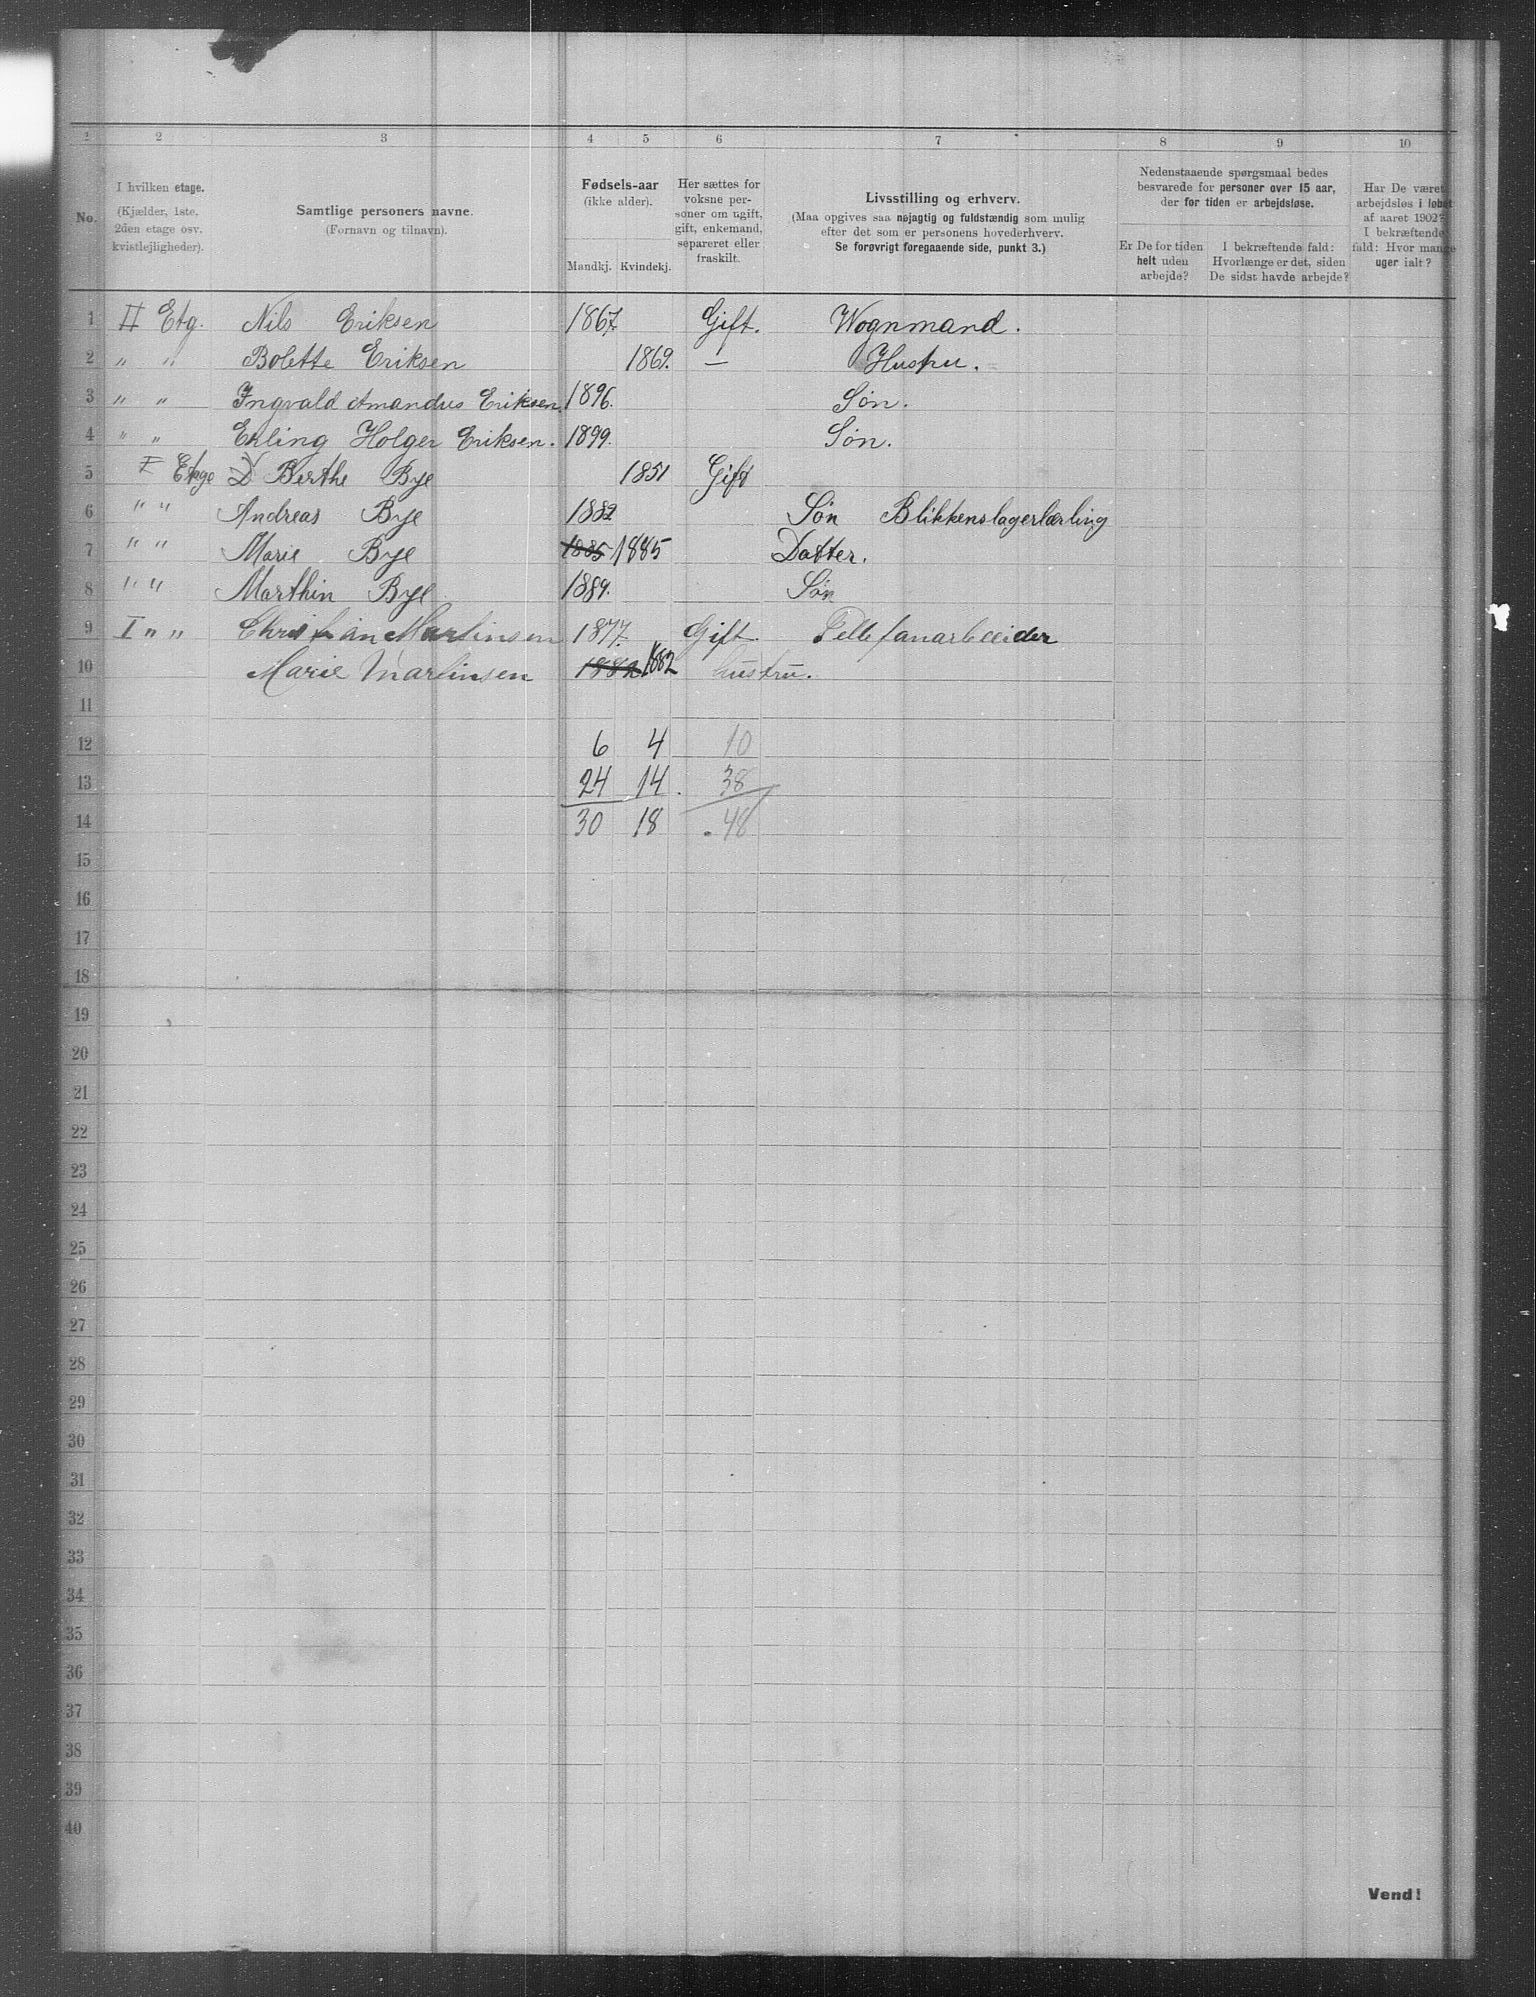 1 2 3 4 5 6 7 8 9 10
No.
I hvilken etage.
(Kjælder, 1ste,
2den etage osv.
kvistlejligheder).
Samtlige personers navne.
(Fornavn og tilnavn).
Fødsels-aar
(ikke alder).
Mandkj. Kvindekj.
Her sættes for
voksne per-
soner om ugift,
gift, enkemand,
separeret eller
fraskilt.
Livsstilling og erhverv.
(Maa opgives saa nøjagtig og fuldstændig som mulig
efter det som er personens hovederhverv.
Se forøvrigt foregaaende side, punkt 3.)
Nedenstaaende spørgsmaal bedes
besvarede for personer over 15 aar,
der for tiden er arbejdsløse.
Er De for tiden
helt uden
arbejde?
I bekræftende fald:
Hvorlænge er det, siden
De sidst havde arbejde?
Har De været
arbejdsløs i løbet
af aaret 1902?
I bekræftende
fald: Hvor mange
uger ialt?
1 II Etg. Nils Eriksen 1867 Gift. Wognmand.
2 " " Bolette Eriksen 1869. — Hustru.
3 " " Ingvald Amandus Eriksen. 1896. Søn.
4 " " Erling Holger Eriksen. 1899. Søn.
5 I Etage Berthe Bye 1851 Gift
6 " " Andreas Bye 1882 Søn Blikkenslagerlærling
7 " " Marie Bye 1885 1885 Datter.
8 " " Marthin Bye 1889. Søn
9 I " " Christian Martinsen 1877. Gift. Tellefanarbeeider
10 Marie Martinsen 1882 1882 hustru.
11
12 6 4 10
13 24 14. 38
14 30 18 . 48
15
16
17
18
19
20
21
22
23
24
25
26
27
28
29
30
31
32
33
34
35
36
37
38
39
40
Vend!